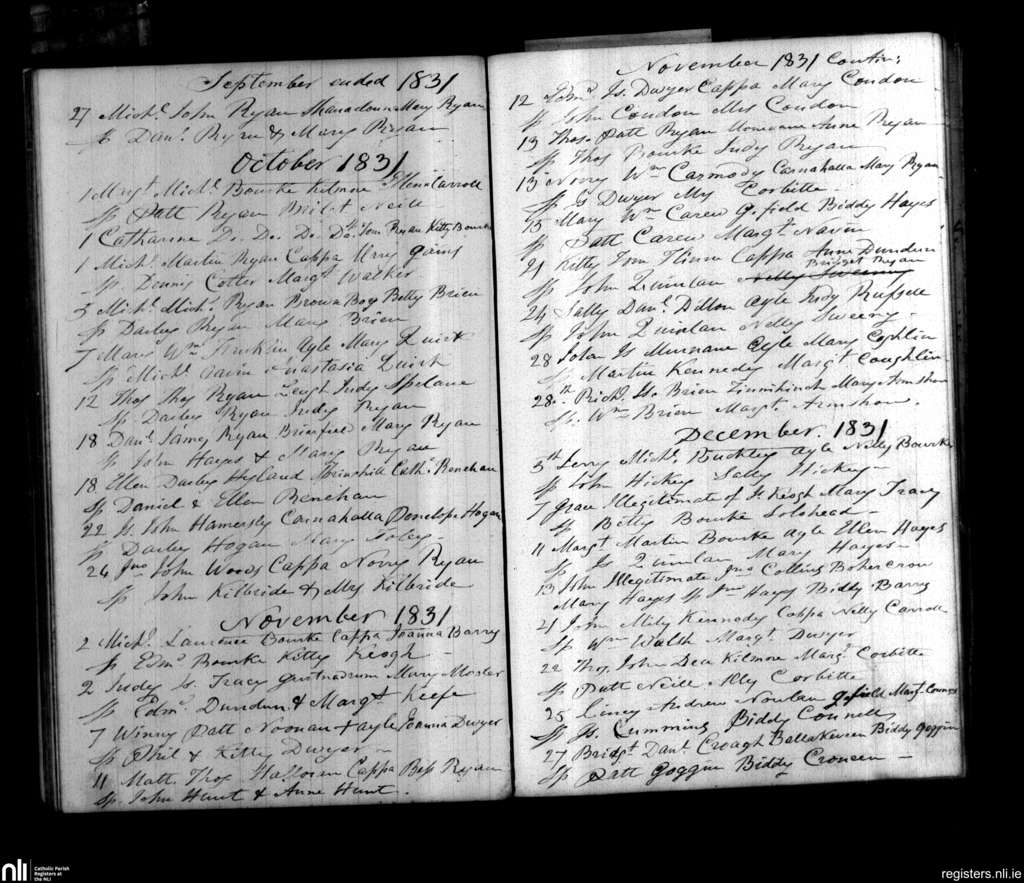 September ended 1831
27 Michl. John Ryan Shanadoun Mary Ryan
Sp Danl. Byrne & Mary Ryan
October 1831
1 Margt. Michl. Bourke Kilmore Ellen Carroll
Sp Patt Ryan Neill
1 Catharine Do. Do. Do. Do. Tom Ryan Kitty Bourke
1 Michl. Martin Ryan Cappa Mary
Sp. Dennis Cotter Margt Walker
5 Michl. Michl. Ryan Brown Bog Betty Brien
Sp Darley Ryan Mary Brien
7 Mary Wm Ayle Mary Quirk
Sp Michl. Anastasia Quirk
12 Thos Thos Ryan Judy Spelane
Sp Darley Ryan Judy Ryan
18 Danl. James Ryan Mary Ryan
Sp John Hayes & Mary Ryan
18 Ellen Darley Hyland Cath. Benehan
Sp Daniel & Ellen Benehan
22 Js. John Hamersly Carnahalla Penelope Hogan
Sp Darley Hogan Mary Foley
24 Jno John Woods Cappa Norry Ryan
Sp John Kilbride & Mys Kilbride
November 1831
2 Michl. Laurence Bourke Cappa Joanna Barry
Sp Edmd Bourke Kitty Keogh
2 Judy Js. Tracy Mary Mosler
Sp Edmd. Dundun & Margt Keefe
7 Winny Patt Noonan Joanna Dwyer
Sp Phil & Kitty Dwyer
11 Matt. Thos Cappa Bess Ryan
Sp. John Hunt & Anne Hunt.
November 1831 Contin:
12 Js. Dwyer Cappa Mary Condon
Sp John Condon Mys Condon
13 Thos. Patt Ryan Anne Ryan
Sp Thos Bourke Judy Ryan
13 Norry Wm Carmody Carnahalla Mary Ryan
Sp Js Dwyer My Corbitte
15 Mary Wm Carew G.field Biddy Hayes
Sp Patt Carew Margt. Navin
21 Kitty Tom Cappa Anne Dundun
Bridget Ryan
Sp John Quinlan Nelly Sweeny
24 Sally Danl. Dillon Ayle Judy Russell
Sp John Quinlan Nelly Sweeny
28 John Js Murnane Ayle Mary Coghlin
Sp Martin Kennedy Margt Coughlin
28th Richd. Js. Brien Mary Armshaw
Sp. Wm Brien Margt. Armshaw.
December. 1831
5th Jerry Michl. Buckley Ayle Nelly Bourke
Sp John Hickey Sally Hickey
7 Grace Illegitimate of Keogh Mary Tracy
Sp Betty Bourke Solohead
11 Margt Martin Bourke Ayle Ellen Hayes
Sp Js Quinlan Mary Hayes
13 John Illegitimate Jno Collins Bohercrow
Mary Hayes Sp Jno Hayes Biddy Barry
21 John Mily Kennedy Cappa Nelly Carroll
Sp Wm Walsh Margt. Dwyer
22 Thos. John Dea Kilmore Margt Corbitte
Sp Patt Neill My Corbitte
25 Andrew Nowlan G.field
Sp Js. Cummins Biddy Connell
27 Bridgt Danl Croagh Biddy Goggin
Sp Patt Goggin Biddy Croneen
nli
Catholic Parish
Registers at
the NLI
registers.nli.ie